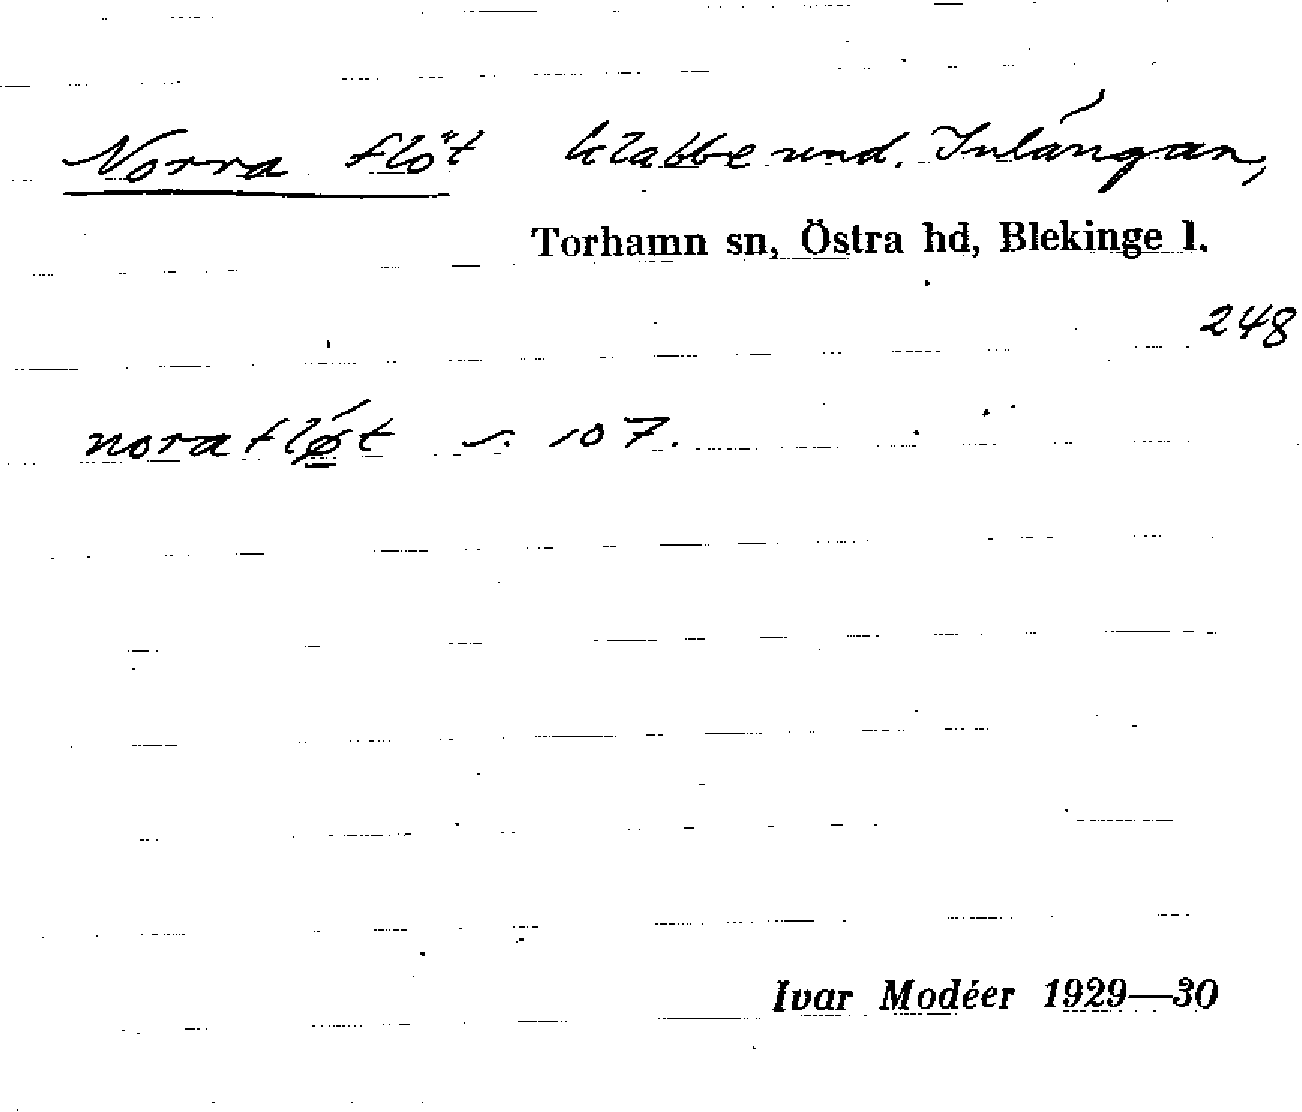 Norra flöt klabbe und. Inlångan,
Torhamn sn, Östra hd, Blekinge l.
248
nora fløt s. 107.
Ivar Modéer 1929—30